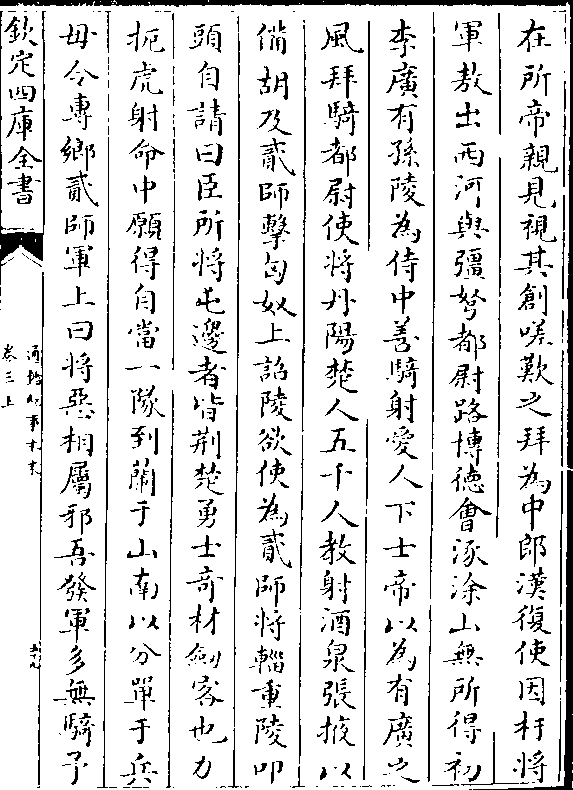 在所帝親見視其創嗟歎之拜為中郎漢復使因杅將
軍敖出西河與彊弩都尉路博德會涿涂山無所得初
李廣有孫陵為侍中善騎射愛人下士帝以為有廣之
風拜騎都尉使將丹陽楚人五千人教射酒泉張掖以
備胡及貳師擊匈奴上詔陵欲使為貳師將輜重陵叩
頭自請曰臣所將屯邊者皆荆楚勇士竒材劒客也力
扼虎射命中願得自當一隊到蘭于山南以分單于兵
毋令專鄉貳師軍上曰將惡相屬邪吾發軍多無騎予
欽定四庫全書
通鑑紀事本末
卷三上